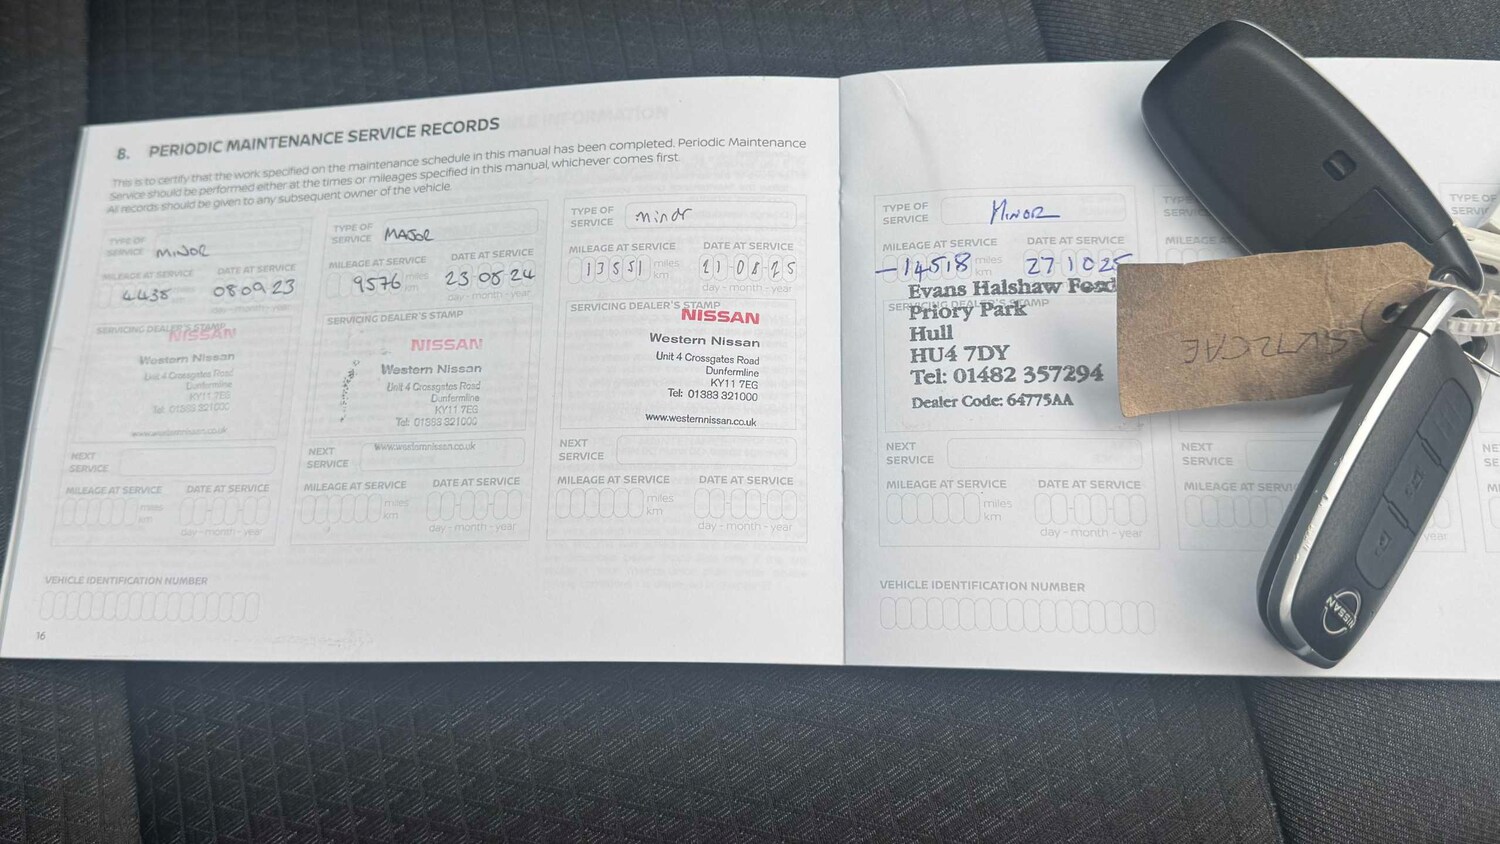 8. PERIODIC MAINTENANCE SERVICE RECORDS
This is to certify that the work specified on the maintenance schedule in this manual has been completed. Periodic Maintenance
Service should be performed either at the times or mileages specified in this manual, whichever comes first.
All records should be given to any subsequent owner of the vehicle.
TYPE OF
SERVICE MINOR
MILEAGE AT SERVICE DATE AT SERVICE
4438 080923
SERVICING DEALER'S STAMP
NISSAN
Western Nissan
Unit 4 Crossgates Road
Dunfermline
KY11 7EG
Tel: 01383 321000
www.westernnissan.co.uk
NEXT
SERVICE
MILEAGE AT SERVICE DATE AT SERVICE
miles
km
day - month - year
TYPE OF
SERVICE MAJOR
MILEAGE AT SERVICE DATE AT SERVICE
9576 miles 23 08 24
km
day - month - year
SERVICING DEALER'S STAMP
NISSAN
Western Nissan
Unit 4 Crossgates Road
Dunfermline
KY11 7EG
Tel: 01383 321000
www.westernnissan.co.uk
NEXT
SERVICE
MILEAGE AT SERVICE DATE AT SERVICE
miles
km
day - month - year
TYPE OF
SERVICE Minor
MILEAGE AT SERVICE DATE AT SERVICE
13551 miles 21-08-25
km
day - month - year
SERVICING DEALER'S STAMP
NISSAN
Western Nissan
Unit 4 Crossgates Road
Dunfermline
KY11 7EG
Tel: 01383 321000
www.westernnissan.co.uk
NEXT
SERVICE
MILEAGE AT SERVICE DATE AT SERVICE
miles
km
day - month - year
VEHICLE IDENTIFICATION NUMBER
16
TYPE OF
SERVICE MINOR
MILEAGE AT SERVICE DATE AT SERVICE
14518 miles 271025
km
SERVICING DEALER'S STAMP
Evans Halshaw Ford
Priory Park
Hull
HU4 7DY
Tel: 01482 357294
Dealer Code: 64775AA
NEXT
SERVICE
MILEAGE AT SERVICE DATE AT SERVICE
miles
km
day - month - year
VEHICLE IDENTIFICATION NUMBER
NEXT
SERVICE
MILEAGE AT
NISSAN